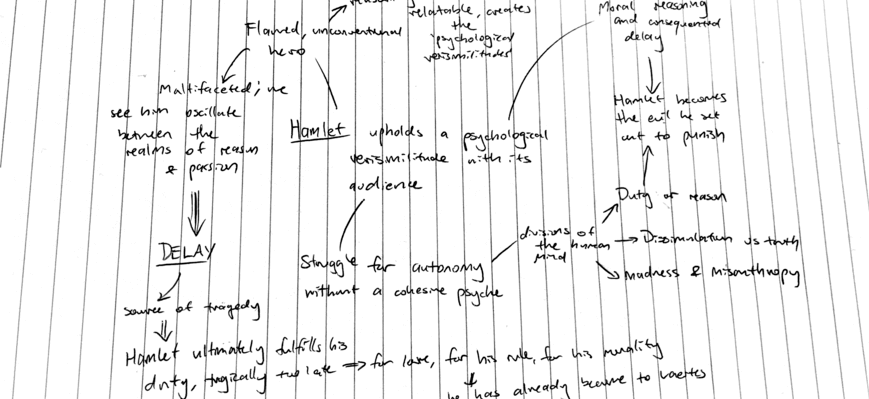 relatable, creates
the
'psychological
verisimilitudes
Flawed, unconventional
hero
Moral reasoning
and consequential
delay
Multifaceted; we
see him oscillate
between the
realms of reason
& passion
Hamlet upholds a psychological
verisimilitude with its
audience
Hamlet becomes
the evil he set
out to punish
Duty of reason
divisions of
the human
mind
Dissimulation vs truth
madness & misanthropy
DELAY
Struggle for autonomy
without a cohesive psyche
source of tragedy
Hamlet ultimately fulfills his
duty, tragically too late => for love, for his rule, for his morality
he has already become to Laertes